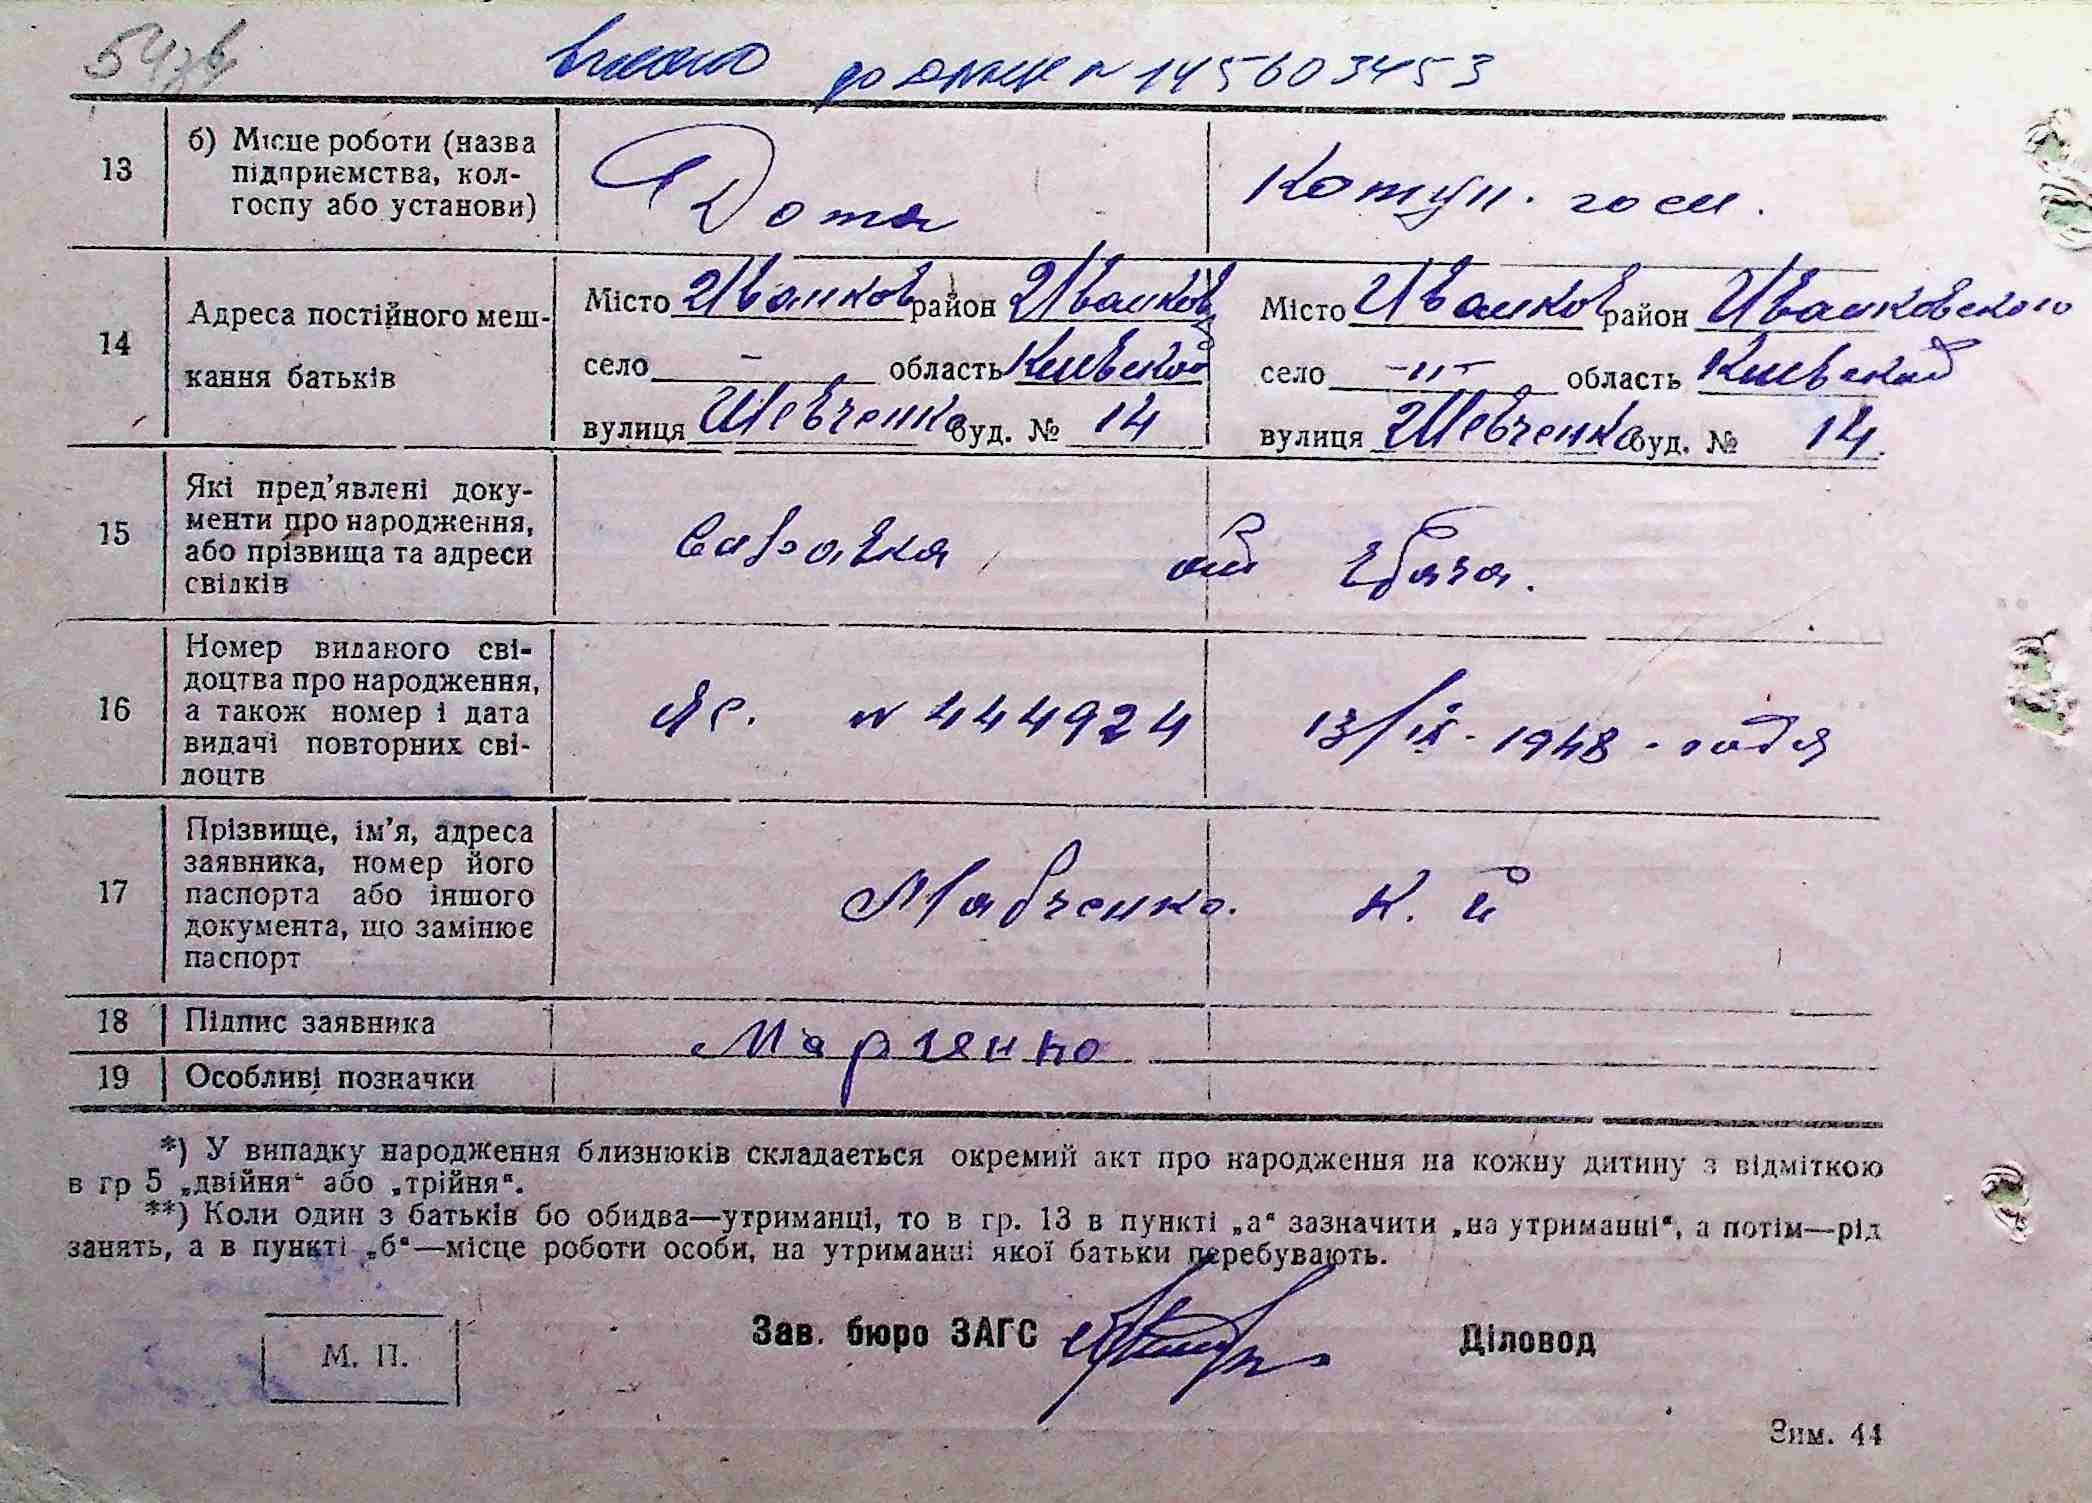 внесено до ДРАЦС № 145603453
13
б) Місце роботи (назва
підприємства, кол-
госпу або установи)
Дома
14
Адреса постійного меш-
кання батьків
Місто Иванков район Иванков
село — область Киевской
вулиця Шевченко буд. № 14
Місто Иванков район Иванковского
село -"- область Киевской
вулиця Шевченко буд. № 14.
15
Які пред'явлені доку-
менти про народження,
або прізвища та адреси
свідків
Справка от врача.
16
Номер виданого сві-
доцтва про народження,
а також номер і дата
видачі повторних сві-
доцтв
ЯС. № 444924 13/IX - 1948 - года
17
Прізвище, ім'я, адреса
заявника, номер його
паспорта або іншого
документа, що замінює
паспорт
К. И
18
Підпис заявника
Марченко
19
Особливі позначки
*) У випадку народження близнюків складається окремий акт про народження на кожну дитину з відміткою
в гр 5 „двійня“ або „трійня“.
**) Коли один з батьків бо обидва—утриманці, то в гр. 13 в пункті „а“ зазначити „на утриманні“, а потім—рід
занять, а в пункті „б“—місце роботи особи, на утриманні якої батьки перебувають.
М. П.
Зав. бюро ЗАГС
Діловод
Зим. 44